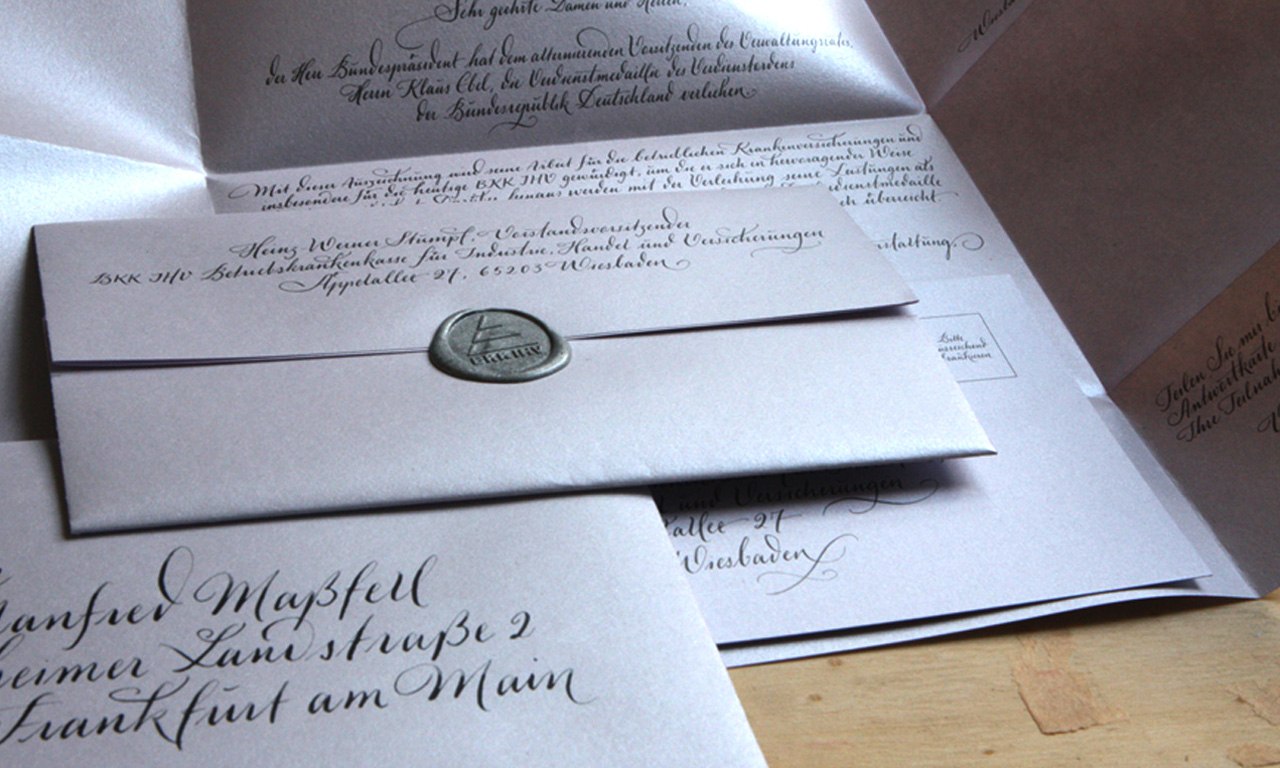 Sehr geehrte Damen und Herren,
der Herr Bundespräsident hat dem alternierenden Vorsitzenden des Verwaltungsrates,
Herrn Klaus Ebel, die Verdienstmedaille des Verdienstordens
der Bundesrepublik Deutschland verliehen.
Mit dieser Auszeichnung wird seine Arbeit für die betrieblichen Krankenversicherungen und
insbesondere für die heutige BKK IHV gewürdigt, um die er sich in hervorragender Weise
hinaus werden mit der Verleihung seine Leistungen als
dienstmedaille
überreicht.
staltung.
Heinz-Werner Stumpf, Vorstandsvorsitzender
BKK IHV Betriebskrankenkasse für Industrie, Handel und Versicherungen
Appelallee 27, 65203 Wiesbaden
Bitte
ausreichend
frankieren
Teilen Sie mir bi
Antwortkarte
Ihre Teilnah
und Versicherungen
allee 27
Wiesbaden
Manfred Maßfell
heimer Landstraße 2
Frankfurt am Main